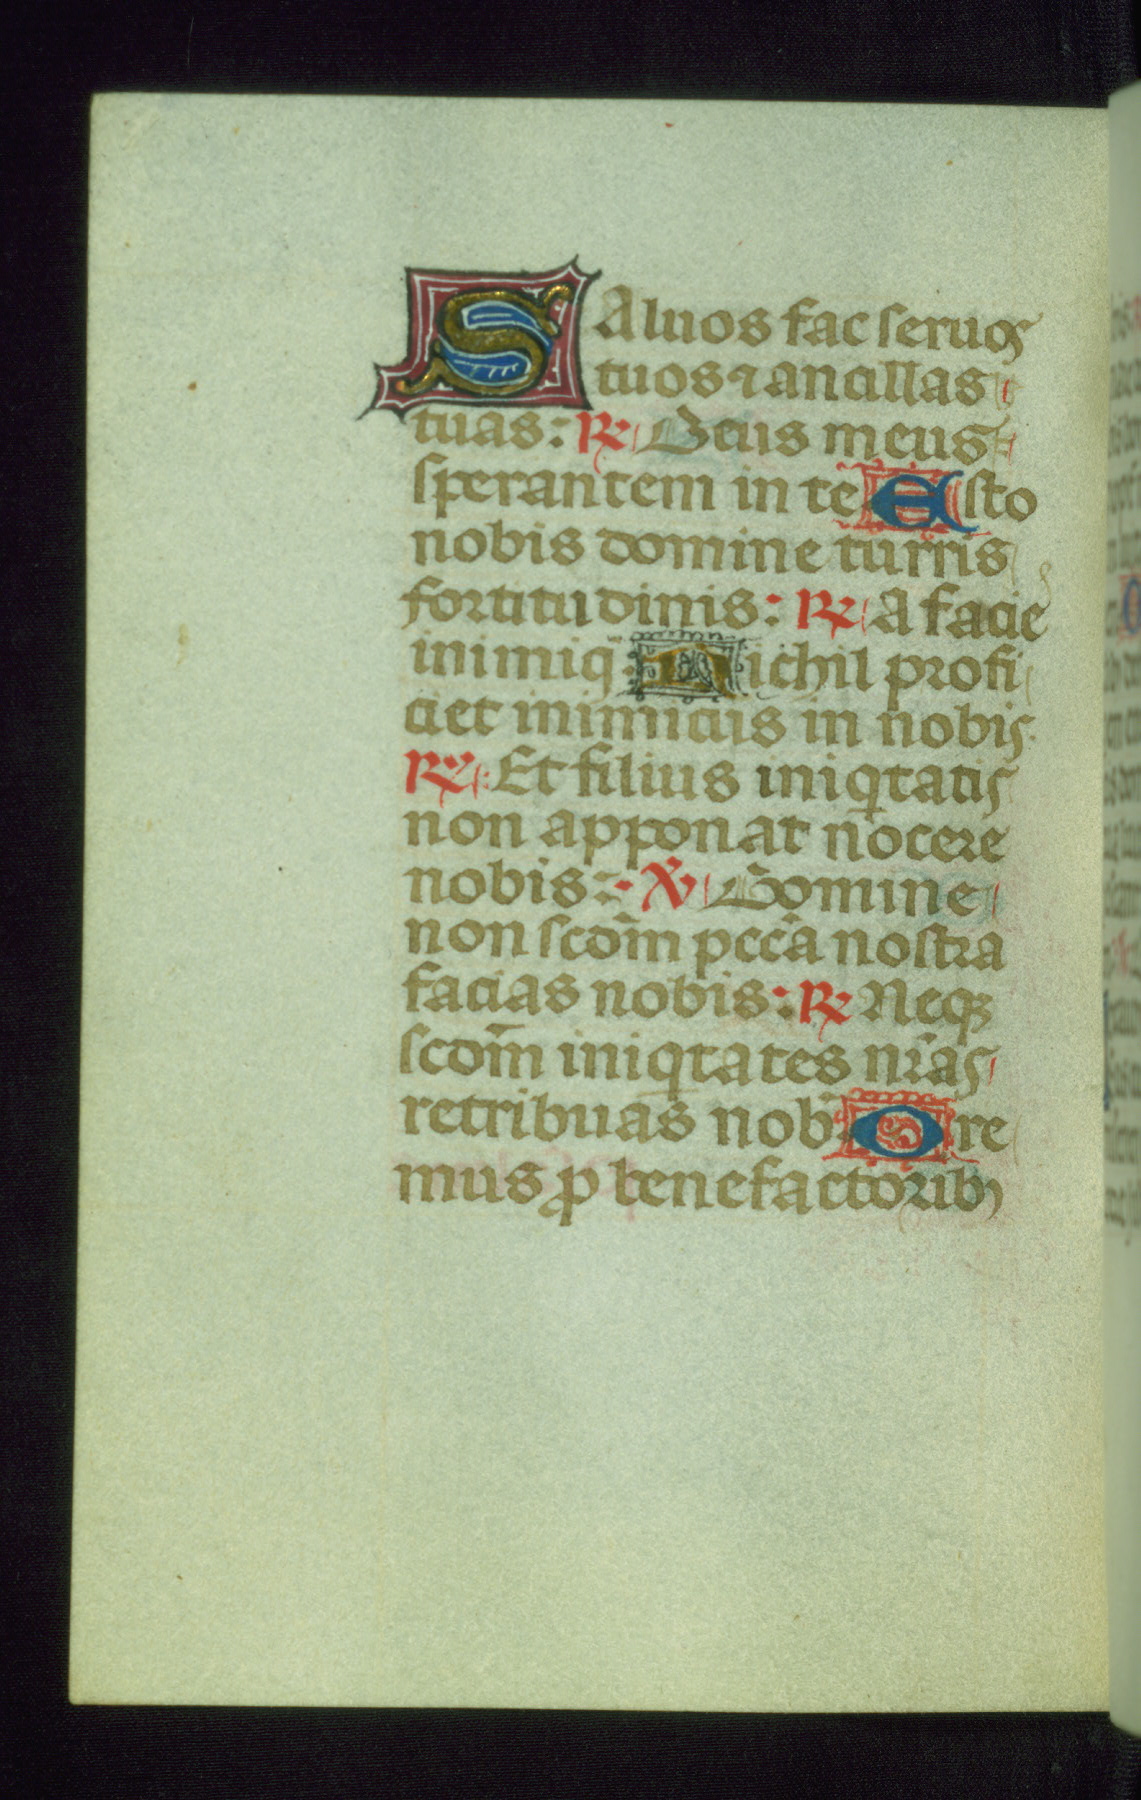 SAluos fac seruos
tuos ⁊ ancillas
tuas: ℟ Deus meus
sperantem in te Esto
nobis domine turris
fortitudinis: ℟ A facie
inimiq Nichil profi
ciet inimicus in nobis.
℟ Et filius iniqtatis
non apponat nocere
nobis: ℣ Domine
non scdm̄ pcc̄a nostra
facias nobis: ℟ Neqꝫ
scdm̄ iniqtates nr̄as
retribuas nob̄ Ore
mus ꝓ benefactoribꝫ